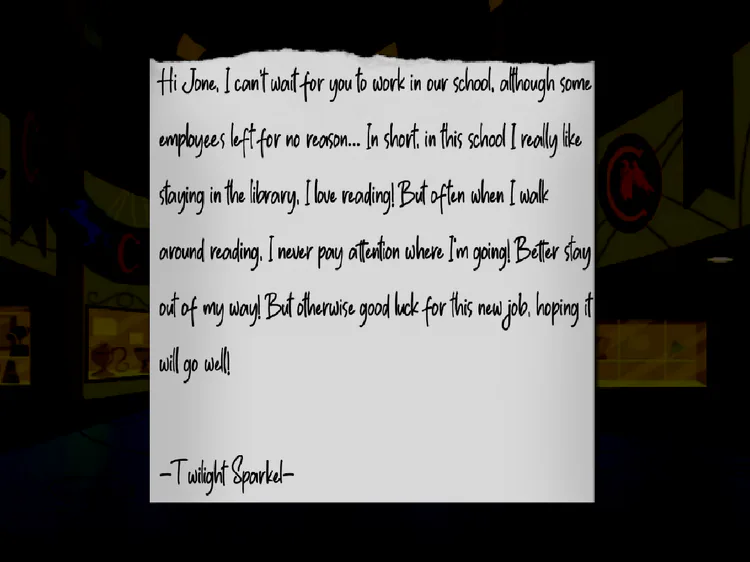 Hi Jone, I can't wait for you to work in our school, although some
employees left for no reason... In short, in this school I really like
staying in the library, I love reading! But often when I walk
around reading, I never pay attention where I'm going! Better stay
out of my way! But otherwise good luck for this new job, hoping it
will go well!
-Twilight Sparkel-